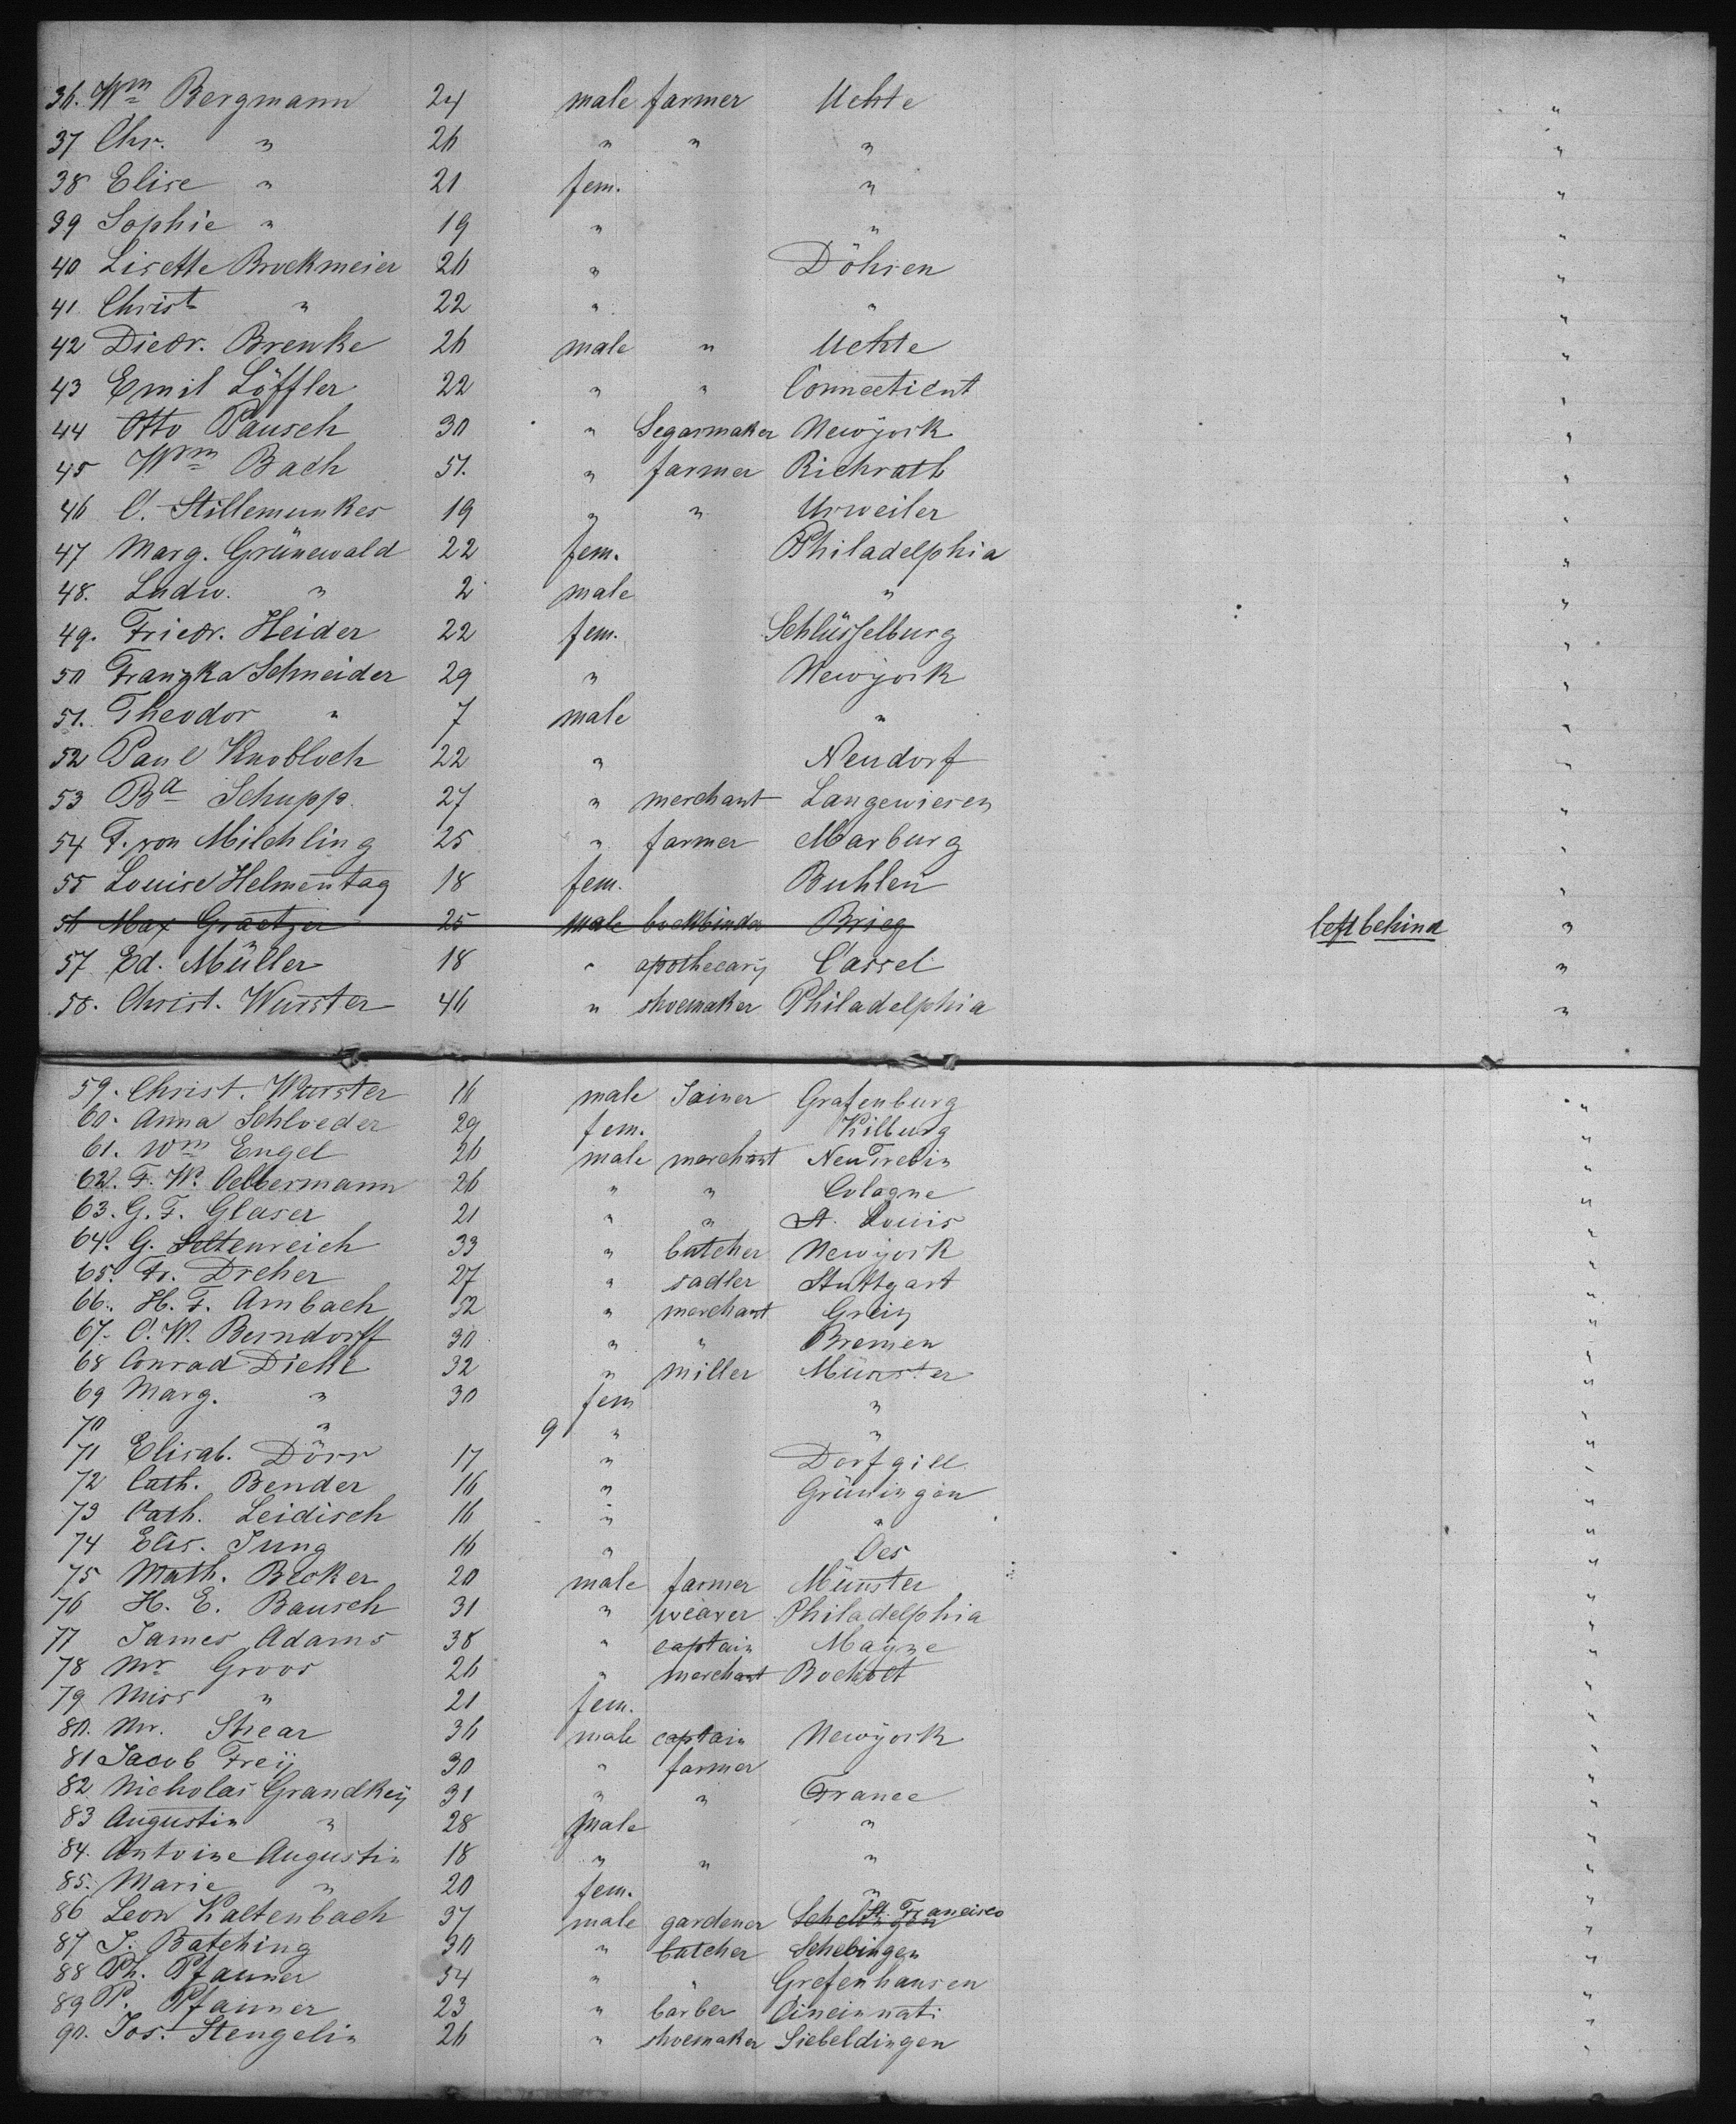 36. Wm Bergmann 24 male farmer Uchte "
37 Chr. " 26 " " " "
38 Elise " 21 fem. " "
39 Sophie " 19 " " "
40 Lisette Brockmeier 26 " Döhren "
41. Christ " 22 " " "
42 Diedr. Brenke 26 male " Uchte "
43 Emil Löffler 22 " " Connecticut "
44 Otto Pausch 30 " Segarmaker Newyork "
45 Wm Bach 51. " farmer Richrath "
46 C. Stillemunkes 19 " " Urweiler "
47 Marg. Grünewald 22 fem. Philadelphia "
48. Ludw. " 2 male " "
49. Friedr. Heider 22 fem. Schlüsselburg "
50 Franzka Schneider 29 " Newyork "
51. Theodor " 7 male " "
52 Paul Knobloch 22 " Neudorf "
53 Ba Schupp. 27 " merchant Langewiesen "
54 F. von Milchling 25 " farmer Marburg "
55 Louise Helmentag 18 fem. Buhlen "
56 Max Graetzer 25 male bookbinder Brieg left behind "
57 Ed. Müller 18 " apothecary Cassel "
58. Christ. Wurster 46 " shoemaker Philadelphia "
59. Christ. Wurster 16 male Joiner Grafenburg "
60. Anna Schloeder 29 fem. Kilburg "
61. Wm Engel 26 male merchant Neu Trebin "
62. F. W. Oelbermann 26 " " Cologne "
63. G. F. Glaser 21 " " St. Louis "
64. G. Seltenreich 33 " butcher Newyork "
65. Fr. Dreher 27 " sadler Stuttgart "
66. H. F. Ambach 52 " merchant Greiz "
67. C. W. Berndorff 30 " " Bremen "
68 Conrad Diehl 32 " miller Münster "
69 Marg. " 30 fem " "
70 " 9 " " "
71 Elisab. Dörr 17 " Dorfgill "
72 Cath. Bender 16 " Grüningen "
73 Cath. Leidisch 16 " " "
74 Elis. Jung 16 " Oes "
75 Math. Becker 20 male farmer Münster "
76 H. E. Bausch 31 " weaver Philadelphia "
77 James Adams 38 " captain Mayne "
78 Mr Groos 26 " merchant Bocholt "
79 Miss " 21 fem. "
80. Mr. Shear 36 male captain Newyork "
81 Jacob Freÿ 30 " farmer "
82 Nicholas Grandkeÿ 31 " " France "
83 Augustin " 28 male " "
84. Antoine Augustin 18 " " " "
85. Marie " 20 fem. " "
86 Leon Kaltenbach 37 male gardener St. Francisco "
87 J. Batching 30 " butcher Schebingen "
88 Ph. Pfauner 54 " " Grefenhausen "
89 P. Pfaimer 23 " barber Cincinnati "
90. Jos. Stengelin 26 " shoemaker Siebeldingen "